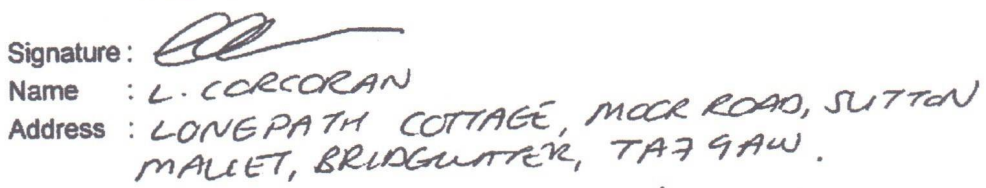 Signature :
Name : L. CORCORAN
Address : LONGPATH COTTAGE, MOOR ROAD, SUTTON
MALLET, BRIDGWATER, TA7 9AW.